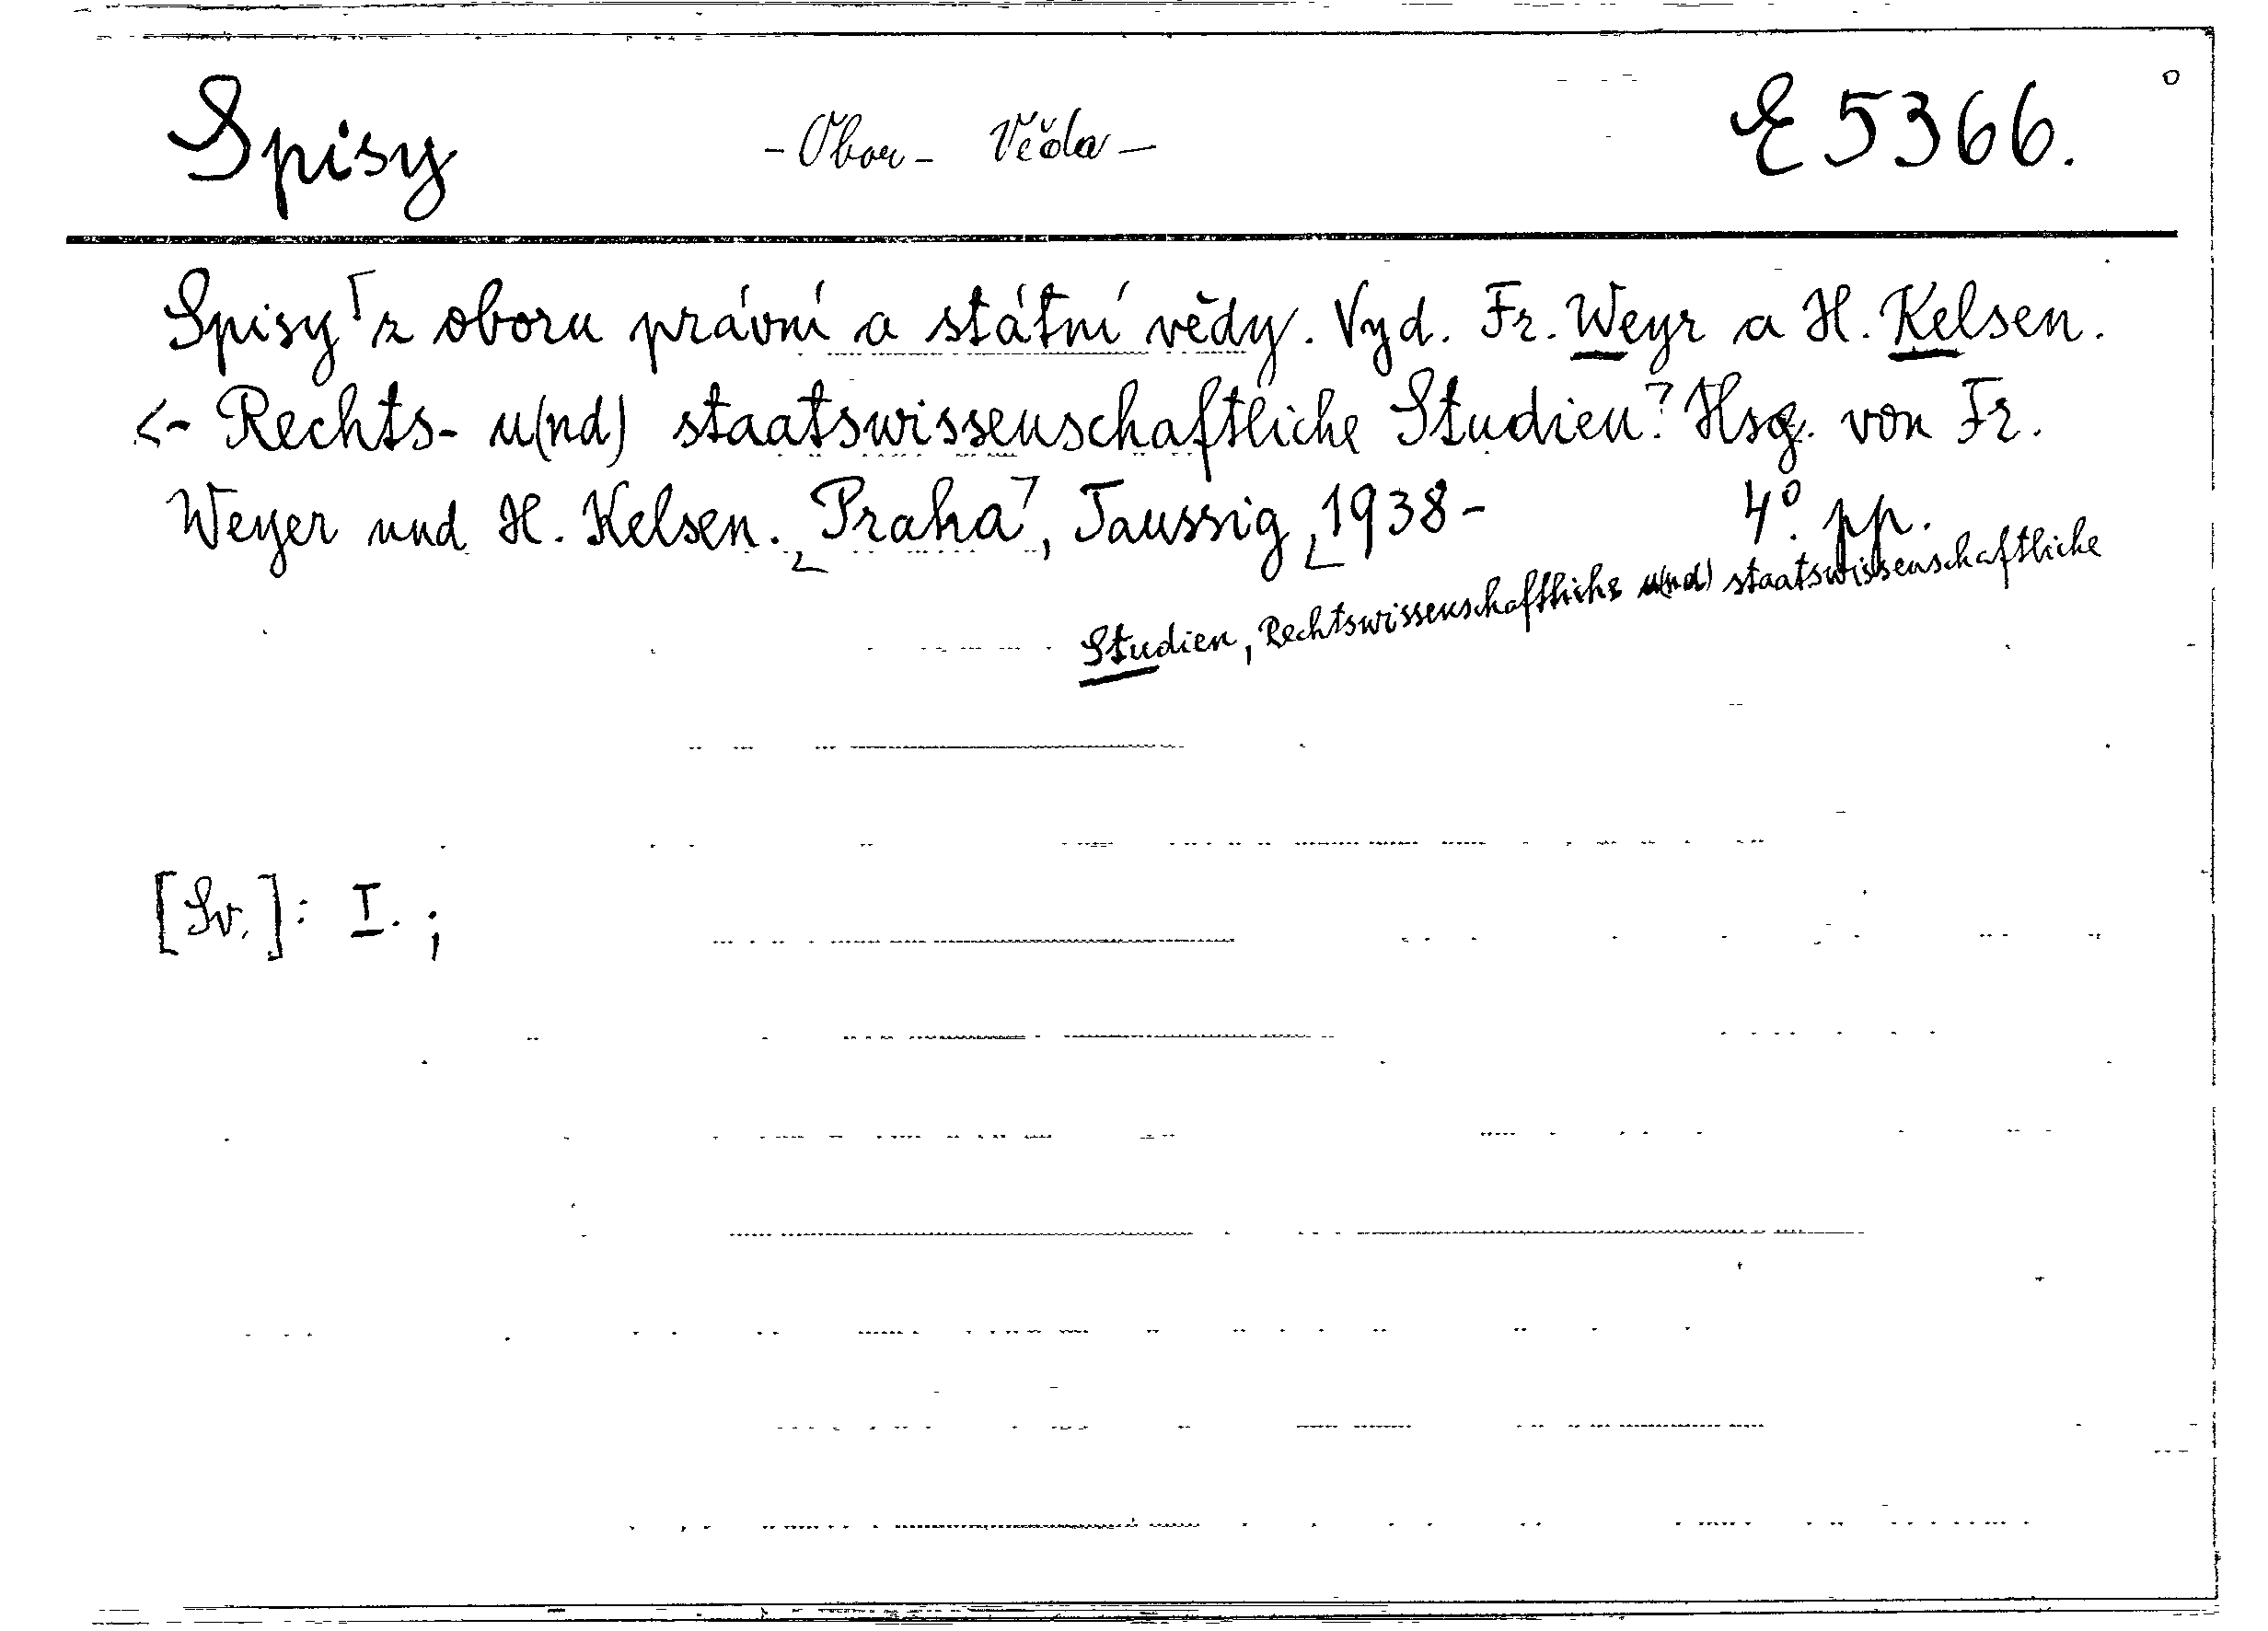 Spisy - Obor - Věda - E 5366.
Spisy ⌈z oboru právní a státní vědy. Vyd. Fr. Weyr a H. Kelsen.
<- Rechts- u(nd) staatswissenschaftliche Studien⌉. Hsg. von Fr.
Weyer und H. Kelsen. ⌊Praha⌉, Taussig ⌊1938- 4° pp.
Studien, Rechtswissenschaftliche u(nd) staatswissenschaftliche
[Sv.]: I. ;